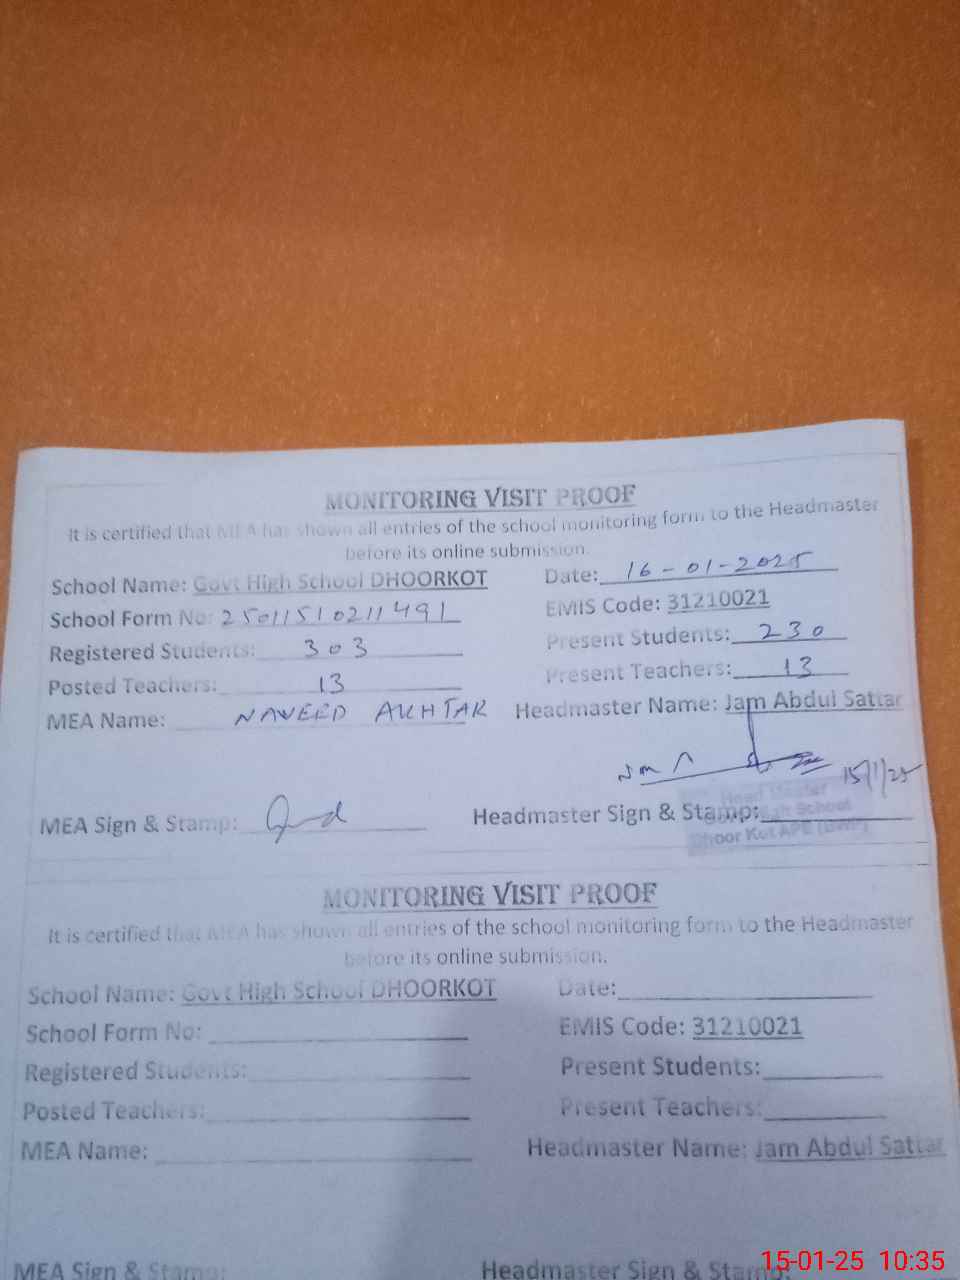 MONITORING VISIT PROOF
It is certified that MEA has shown all entries of the school monitoring form to the Headmaster
before its online submission.
School Name: Govt High School DHOORKOT Date: 16-01-2025
School Form No: 25011510211491 EMIS Code: 31210021
Registered Students: 303 Present Students: 230
Posted Teachers: 13 Present Teachers: 13
MEA Name: NAVEED AKHTAR Headmaster Name: Jam Abdul Sattar
15/1/25
MEA Sign & Stamp: Headmaster Sign & Stamp:
Head Master
School
Dhoor Kot APE
MONITORING VISIT PROOF
It is certified that MEA has shown all entries of the school monitoring form to the Headmaster
before its online submission.
School Name: Govt High School DHOORKOT Date:
School Form No: EMIS Code: 31210021
Registered Students: Present Students:
Posted Teachers: Present Teachers:
MEA Name: Headmaster Name: Jam Abdul Sattar
MEA Sign & Stamp: Headmaster Sign & Stamp:
15-01-25 10:35